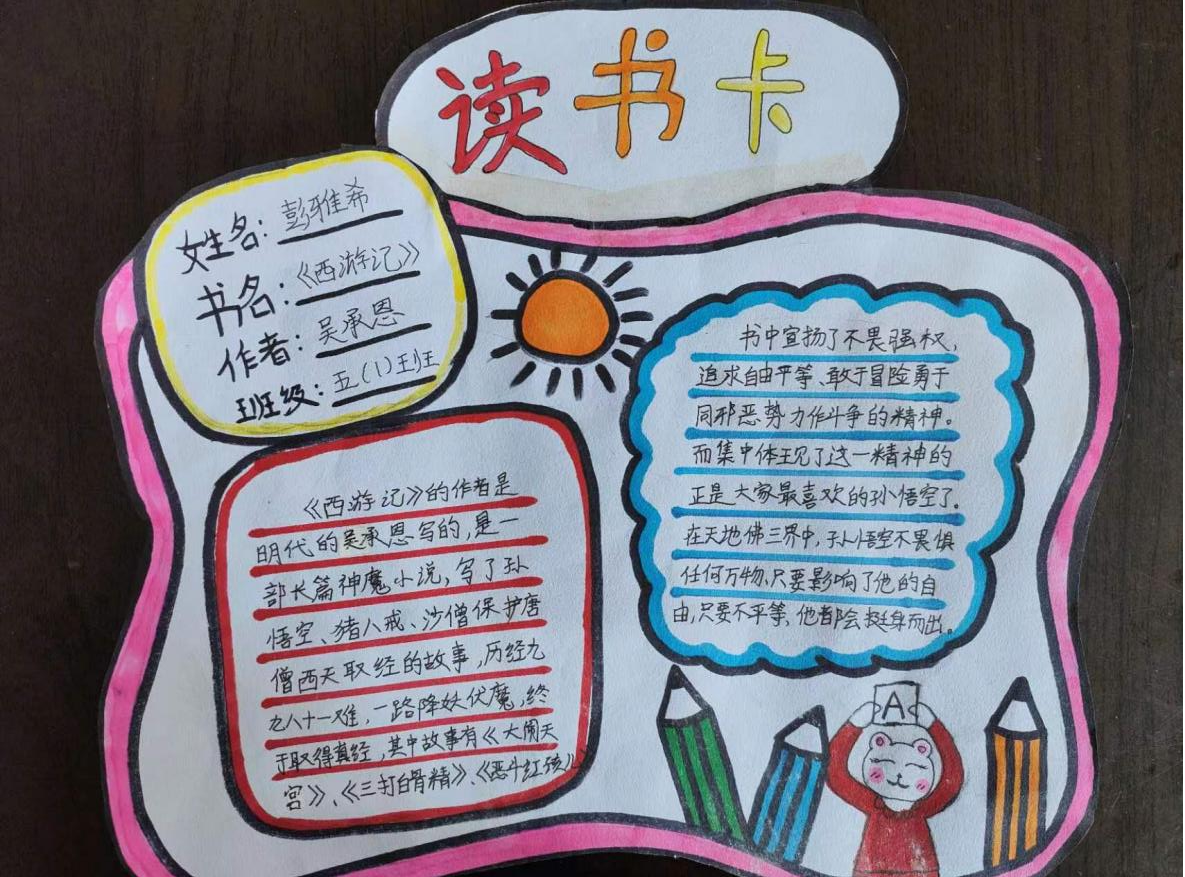 读书卡
姓名：彭雅希
书名：《西游记》
作者：吴承恩
班级：五（1）班
《西游记》的作者是
明代的吴承恩写的，是一
部长篇神魔小说，写了孙
悟空、猪八戒、沙僧保护唐
僧西天取经的故事，历经九
九八十一难，一路降妖伏魔，终
于取得真经，其中故事有《大闹天
宫》、《三打白骨精》、《恶斗红孩》
书中宣扬了不畏强权，
追求自由平等、敢于冒险勇于
同邪恶势力作斗争的精神。
而集中体现了这一精神的
正是大家最喜欢的孙悟空了。
在天地佛三界中，孙悟空不畏惧
任何万物、只要影响了他的自
由，只要不平等，他都会挺身而出。
A